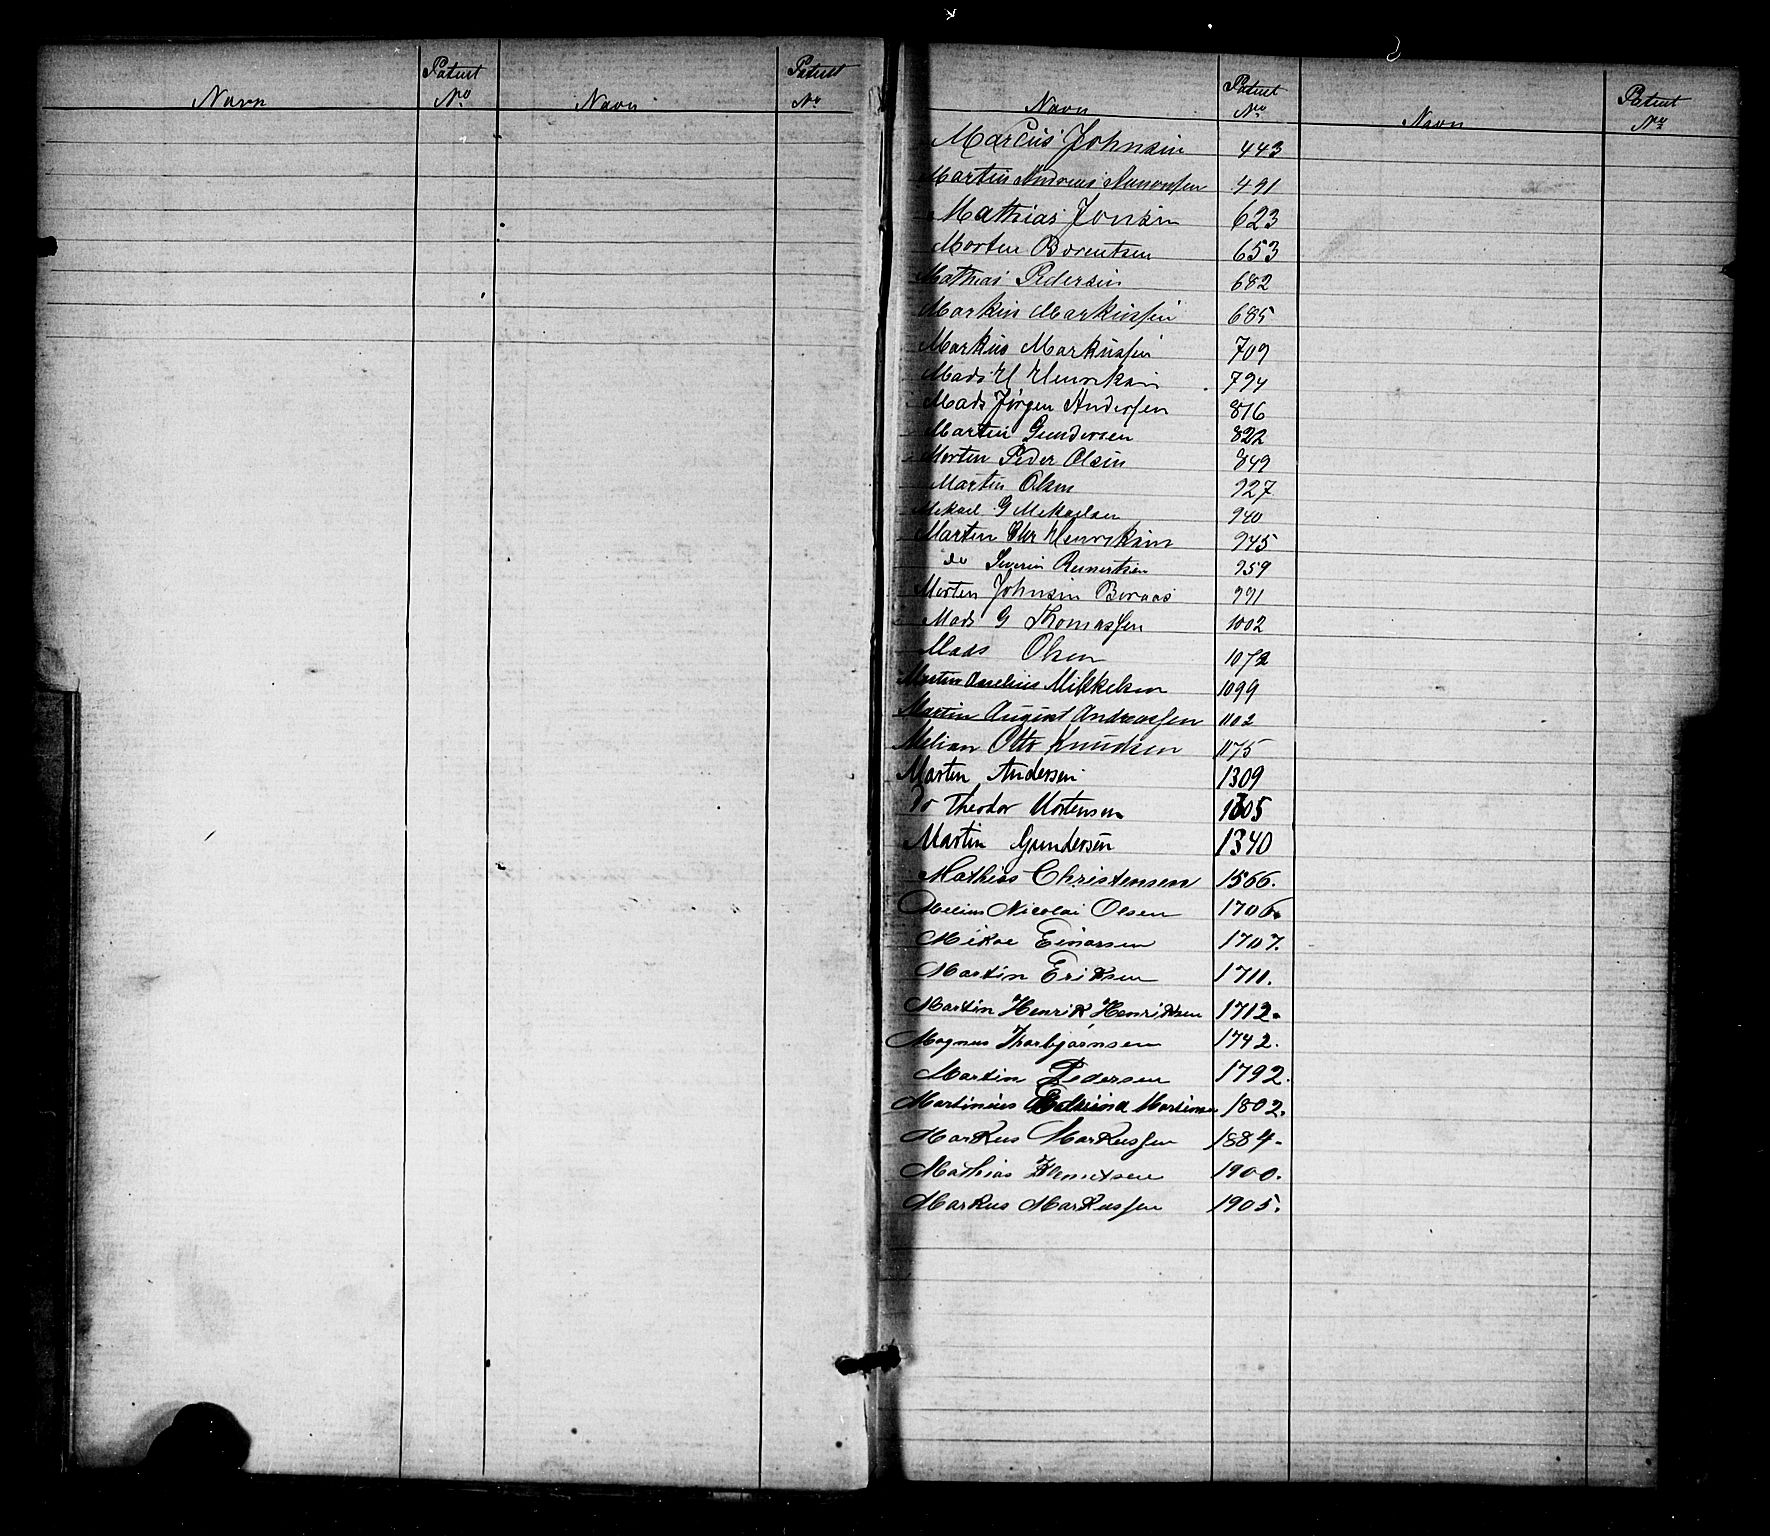 Patent Patent
Navn No Navn No
Patent Patent
Navn No Navn No
Marcus Johnsen 443
Martin Andreas 491
Mathias Jonsen 623
Morten Borentsen 653
Mathias Pedersen 682
Markus Markussen 685
Markus Markussen 709
Mads H Henriksen 794
Mads Jørgen Anderssen 816
Martin Gundersen 822
Morten Peder Olsen 849
Martin Olsen 927
Mekael G Mekaelsen 940
Martin Chr Henriksen 945
do Severin Reinertsen 959
Morten Johnsen Boraas 991
Mads G Thomassen 1002
Mads Olsen 1072
Martin Aurelius Mikkelsen 1099
Martin August Andreassen 1102
Melian Otto Knudsen 1175
Marten Andersen 1309
Do Theodor Mortensen 1305
Martin Gundersen 1340
Mathias Christensen 1566.
Melius Nicolai Olsen 1706.
Mikae Einarsen 1707.
Martin Eriksen 1711.
Martin Henrik Henriksen 1712.
Magnus Thorbjørnsen 1742.
Martin Pedersen 1792.
Martinius 1802.
Markus Markussen 1884.
Mathias 1900.
Markus Markussen 1905.